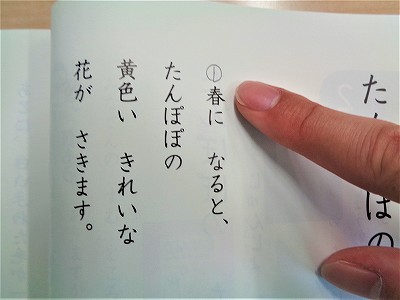 たん
ぽの
①春に なると、
たんぽぽの
黄色い きれいな
花が さきます。